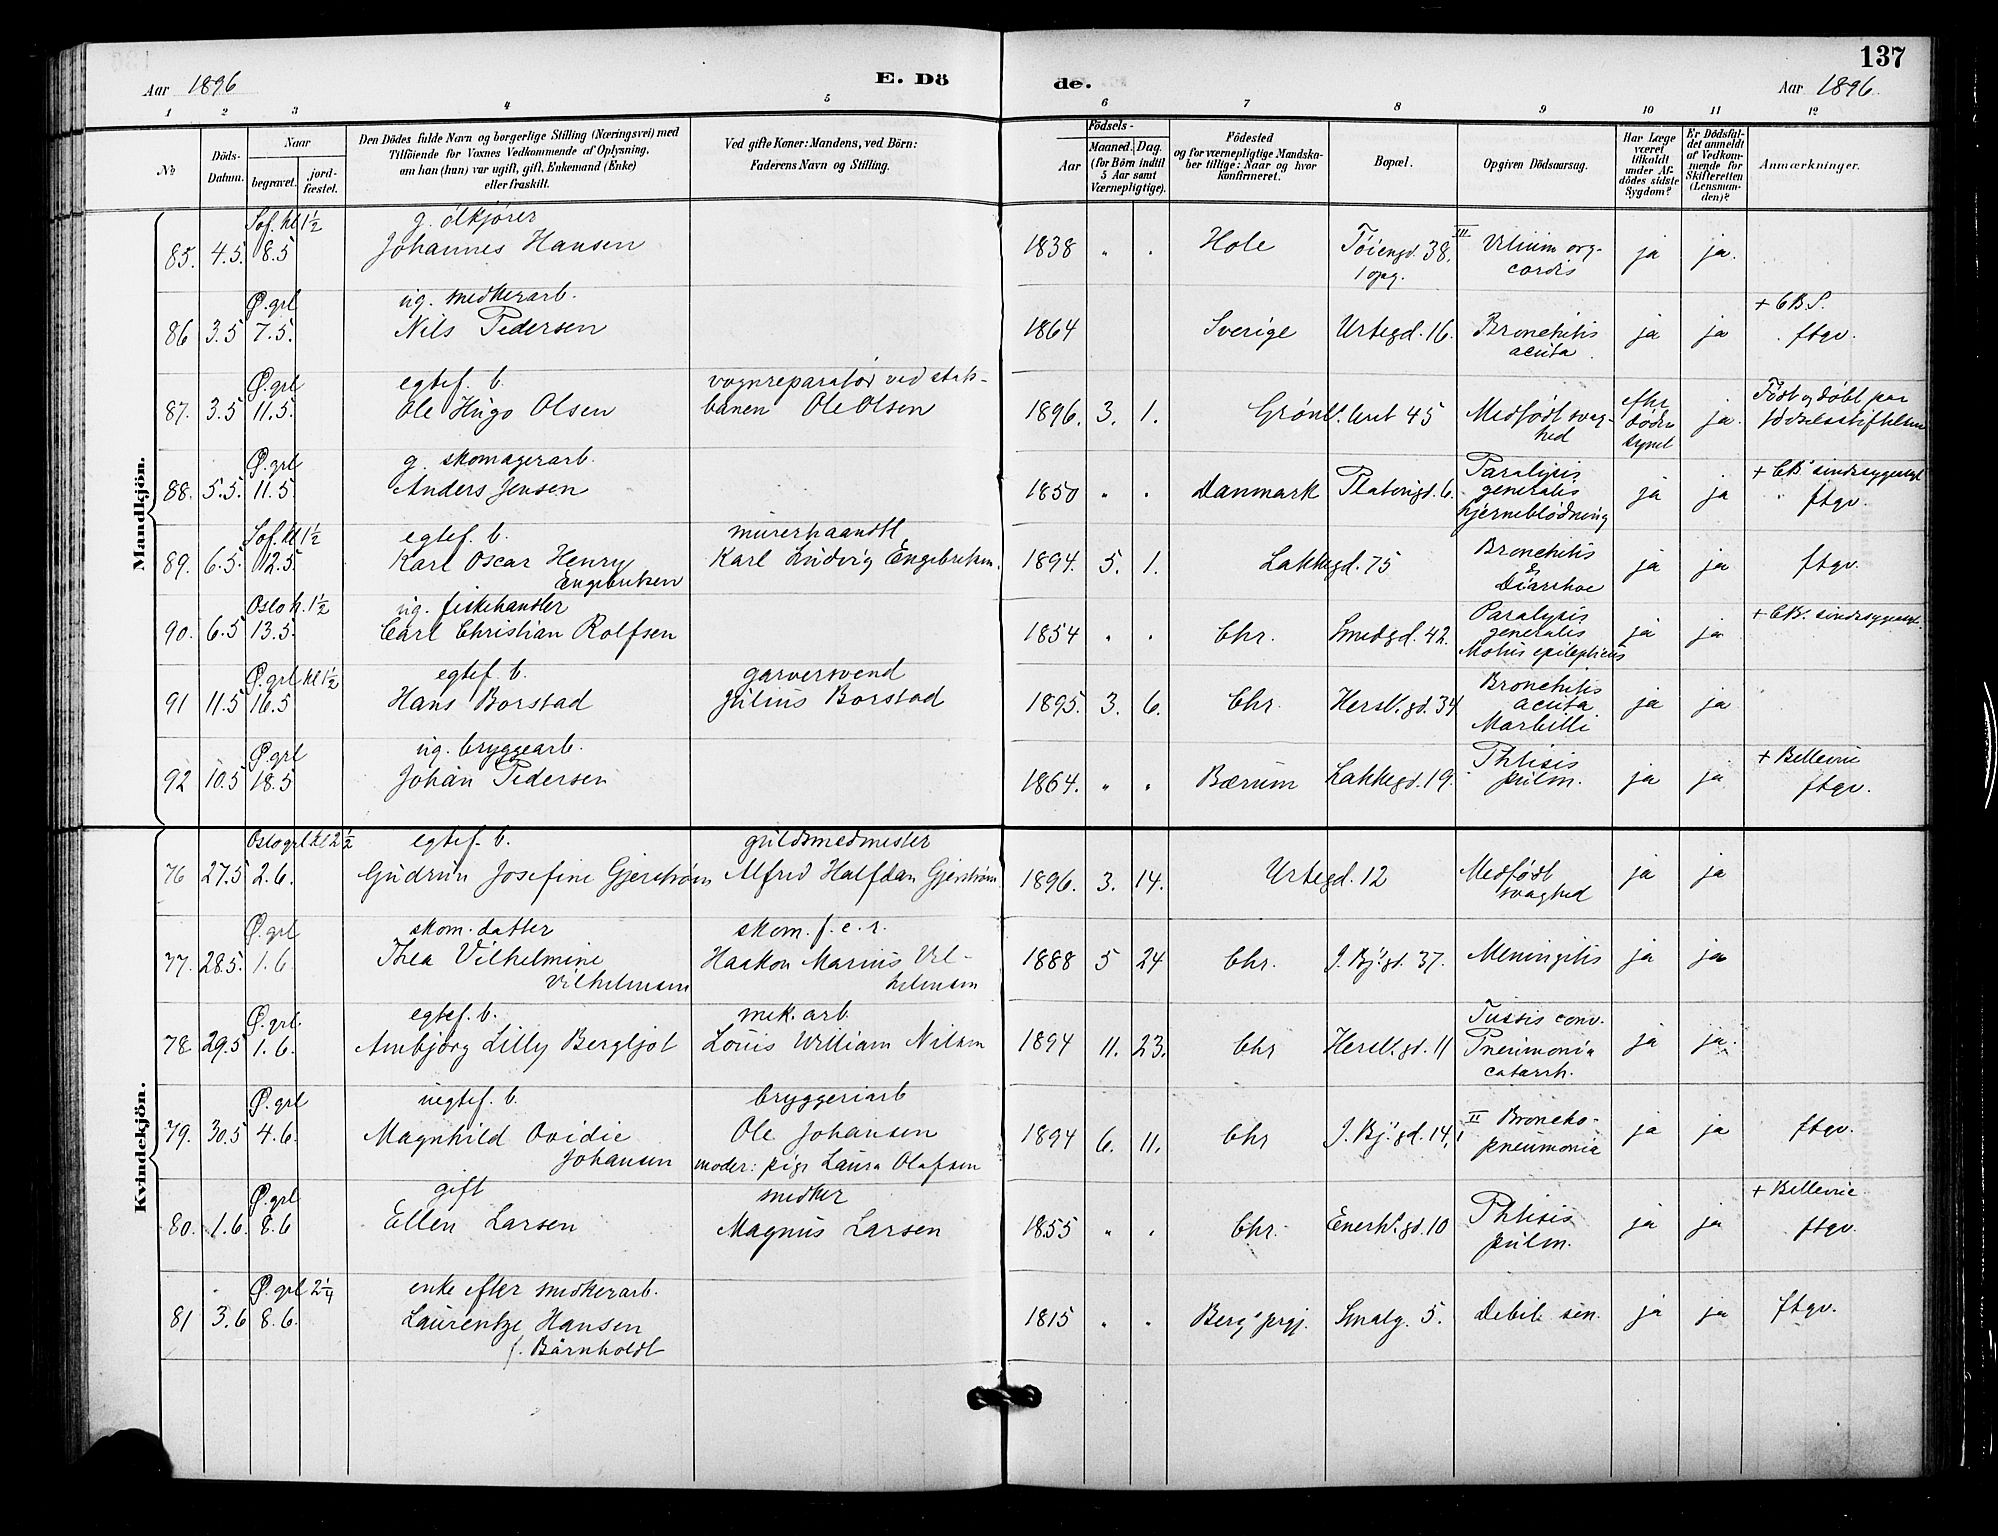 137
Aar 1896 E. Dö de. Aar 1896.
1 2 3 4 5 6 7 8 9 10 11 12
No
Döds-Datum.
Naar
begravet. jord-fæstet.
Den Dödes fulde Navn og borgerlige Stilling (Næringsvei) med
Tilföiende for Voxnes Vedkommende af Oplysning,
om han (hun) var ugift, gift, Enkemand (Enke)
eller fraskilt.
Ved gifte Koner: Mandens, ved Börn:
Faderens Navn og Stilling.
Födsels-
Aar Maaned. Dag.
(for Börn indtil
5 Aar samt
Værnepligtige).
Födested
og for værnepligtige Mandska-
ber tillige: Naar og hvor
konfirmeret.
Bopæl.
Opgiven Dödsaarsag.
Har Læge
været
tilkaldt
under Af-
dödes sidste
Sygdom?
Er Dödsfal-
det anmeldt
af Vedkom-
mende for
Skifteretten
(Lensman-
den)?
Anmærkninger.
Mandkjön.
Sof. kl 1½ g. ölkjører
85. 4.5. 8.5 Johannes Hansen 1838 " " Hole Töiengd. 38. III Vitium org. ja ja.
1 opg. cordis
Ø. grl ug. smedkerarb. + CBS.
86 3.5 7.5. Nils Pedersen 1864 Sverige Urtegd. 16. Bronchitis ja ja ftgv.
acuta
Ø. grl egtef. b. vognreparatör ved stats-
87. 3.5 11.5. Ole Hugo Olsen banen Ole Olsen 1896. 3. 1. Grönl. leret 45 Medfödt svag- ja. Född og döbt paa
hed födselsstiftelsen
Ø. grl g. skomagerarb. Paralysis + CB sindssygeasyl
88. 5.5. 11.5 Anders Jensen 1850 " " Danmark Platousgd. 6. generalis ja ja ftgv.
hjerneblödning
Sof. kl 1½ egtef. b. murerhaandt
89. 6.5. 12.5. Karl Oscar Henry Karl Ludvig Engebretsen. 1894. 5. 1. Lakkegd. 75 Bronchitis ja ja ftgv.
Engebretsen & Diarrhoe
Oslo k. 1½ ug. fiskehandler Paralysis + CB. sindssygeasyl.
90. 6.5 13.5. Carl Christian Rolfsen 1854 " " Chr. Smedgd. 42. generalis ja ja
Motus epilepticus
Ø. grl kl 1½ egtef. b. garversvend Bronchitis
91 11.5 16.5 Hans Borstad Julius Borstad 1895. 3. 6. Chr. Hersl. gd. 34 acuta ja ja
Morbilli
Ø. grl ug. bryggearb. Phtisis + Bellevue
92 10.5 18.5 Johan Pedersen 1864. " " Bærum Lakkegd. 19. pulm. ja ja ftgv.
Kvindekjön.
Oslo grl kl 2½ egtef. b. guldsmedmester
76 27.5 2.6. Gudrun Josefine Gjerström Alfred Halfdan Gjerström 1896. 3. 14. Urtegd. 12 Medfödt ja ja
svaghed
Ø. grl skom. datter skom. f. e. r.
77. 28.5. 1.6 Thea Vilhelmine Haakon Marius Vil- 1888 5 24 Chr. J. Bj. gd. 37. Meningitis ja ja
Vilhelmsen helmsen
Ø. grl. egtef. b. mek. arb Tussis conv.
78 29.5 1.6. Annbjörg Lilly Bergljot Louis William Nilsen 1894 11. 23. Chr Hersl. gd. 11 Pneumonia ja ja.
catarrh.
Ø. grl uegtef. b. bryggeriarb
79. 30.5 4.6. Magnhild Ovidie Ole Johansen 1894 6. 11. Chr J. Bj. gd. 14. II Broncho- ja ja ftgv.
Johansen moder: pige Laura Olafsen pneumonia
Ø. grl gift smedker + Bellevue
80. 1.6. 8.6 Ellen Larsen Magnus Larsen 1855 " " Chr. Enerh. gd. 10 Phtisis ja ja ftgv.
pulm.
Ø. grl 2¼ enke efter smedkerarb.
81 3.6 8.6. Laurentze Hansen 1815 " " Bergs prgj. Smalg. 5. Debil. sen. ja ja ftgv.
f. Barnholdt